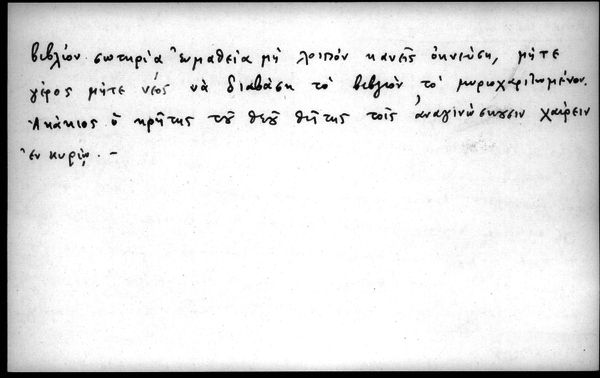 βιβλίον σωτηρία εὐμαθεία μὴ λοιπόν κανεῖς ὀκνεύση, μήτε
γέρος μήτε νέος νὰ διαβάση τὸ βιβλίον τὸ μυριοχαριτωμένον.
Ἀκάκιος ὁ κρῆτης τοῦ θεοῦ θῆτης τοῖς ἀναγινώσκουσιν χαίρειν
ἐν κυρίῳ. -